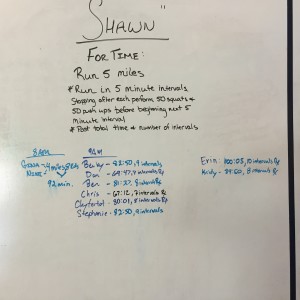 "SHAWN"
FOR TIME:
Run 5 miles
* Run in 5 minute intervals
Stopping after each perform 50 squats &
50 push ups before beginning next 5
minute interval
* Post total time & number of intervals
8AM
4 miles
92 min.
9AM
Becky - 82:50, 9 intervals
Dan - 69:47, 7 intervals Rx
Ben - 81:37, 8 intervals Rx
Chris - 67:12, 7 intervals Rx
- 80:01, 8 intervals Rx
Stephanie - 82:50, 9 intervals
Erin - 100:03, 10 intervals Rx
Kirby - 84:50, 8 intervals Rx